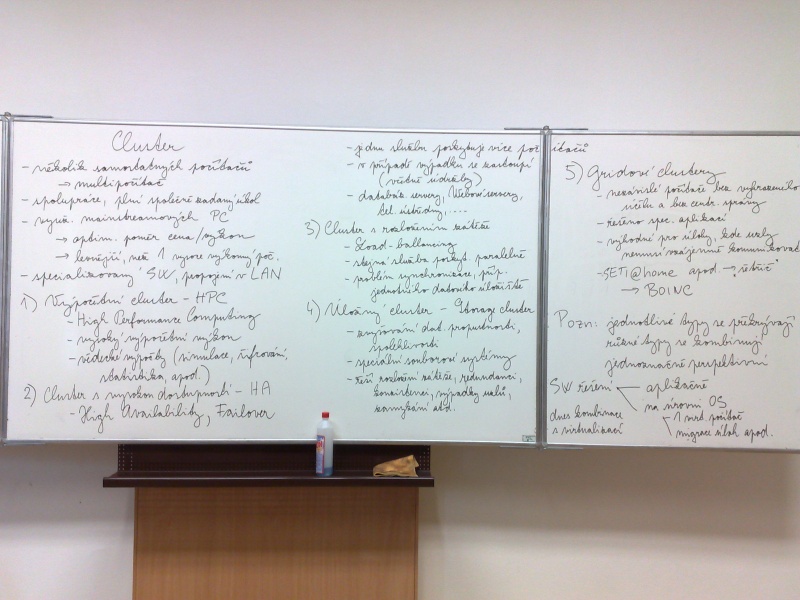 Cluster
- několik samostatných počítačů
→ multipočítač
- spolupráce, plní společně zadaný úkol
- využ. mainstreamových PC
→ optim. poměr cena/výkon
→ levnější, než 1 vysoce výkonný poč.
- specializovaný SW, propojení v LAN
1) Výpočetní cluster - HPC
- High Performance Computing
- vysoký výpočetní výkon
- vědecké výpočty (simulace, šifrování,
statistika, apod.)
2) Cluster s vysokou dostupností - HA
- High Availability, Failover
- jednu službu poskytuje více počítačů
- v případě výpadku se zastoupí
(včetně údržby)
- databáz. servery, Webové servery,
tel. ústředny,....
3) Cluster s rozložením zátěže
- Load-ballancing
- stejná služba poskyt. paralelně
- problém synchronizace, příp.
jednotného datového úložiště
4) Úložný cluster - Storage cluster
- zvyšování dat. propustnosti,
spolehlivosti
- speciální souborové systémy
- řeší rozložení zátěže, redundanci,
konzistenci, výpadky uzlů,
zamykání atd.
5) Gridové clustery
- nezávislé počítače bez vyhrazeného
účelu a bez centr. správy
- řešeno spec. aplikací
- výhodné pro úlohy, kde uzly
nemusí vzájemně komunikovat
- SETI@home apod. →
→ BOINC
Pozn: jednotlivé typy se překrývají
různé typy se kombinují
jednoznačně perspektivní
SW řešení aplikačně
na úrovni OS
dnes kombinace
s virtualizací
1 virt. počítač
migrace úloh apod.